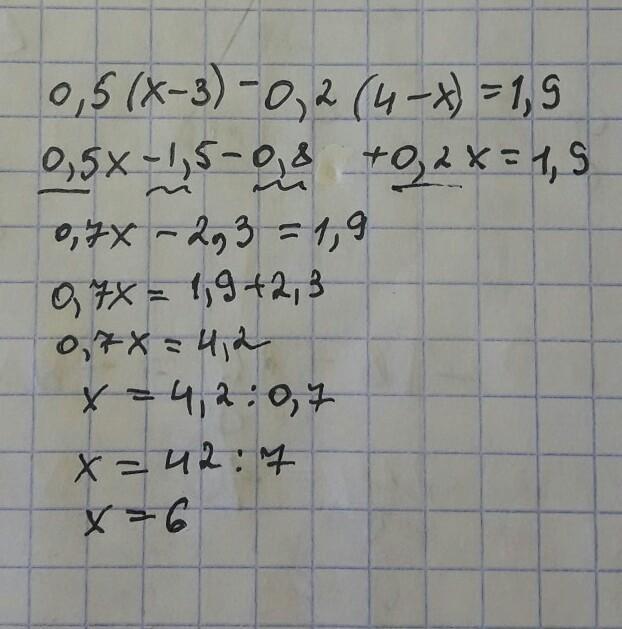 0,5(x-3)-0,2(4-x)=1,9
0,5x-1,5-0,8+0,2x=1,9
0,7x-2,3=1,9
0,7x=1,9+2,3
0,7x=4,2
x=4,2:0,7
x=42:7
x=6